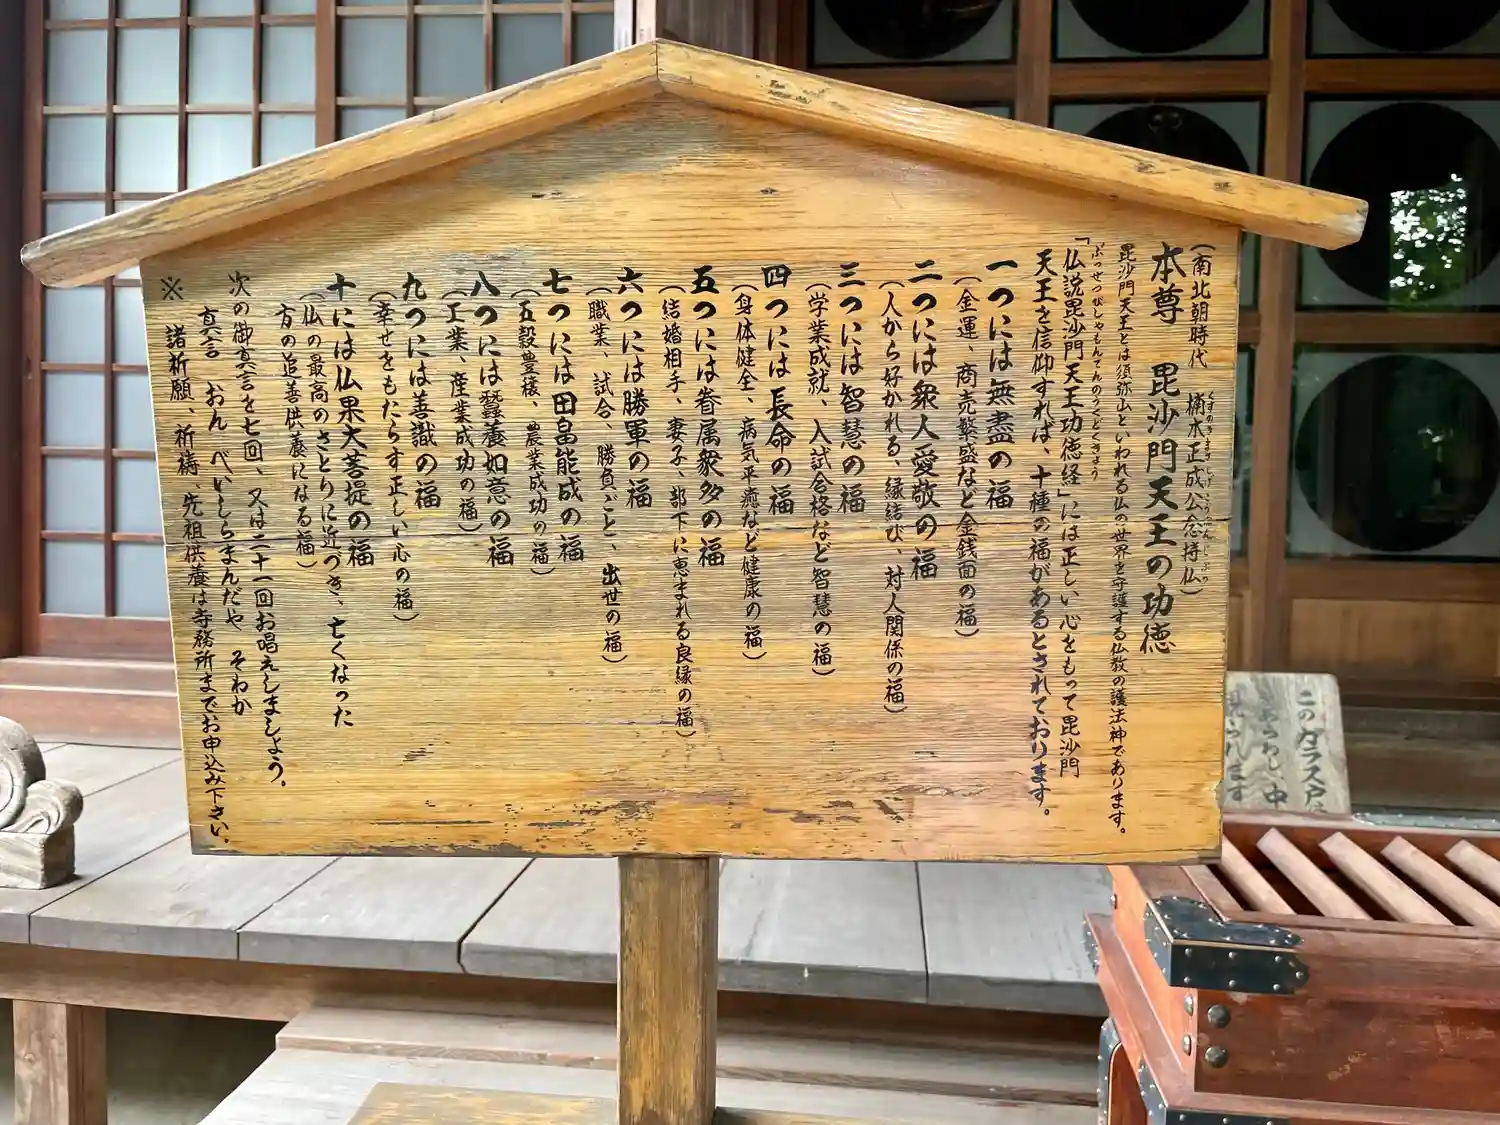 (南北朝時代 楠木正成公念持仏)
くすのきまさしげこうねんじぶつ
本尊 毘沙門天王の功徳
毘沙門天王とは須弥山といわれる仏の世界を守護する仏教の護法神であります。
ぶっせつびしゃもんてんのうくどくきょう
「仏説毘沙門天王功徳経」には正しい心をもって毘沙門
天王を信仰すれば、十種の福があるとされております。
一つには無盡の福
(金運、商売繁盛など金銭面の福)
二つには衆人愛敬の福
(人から好かれる、縁結び、対人関係の福)
三つには智慧の福
(学業成就、入試合格など智慧の福)
四つには長命の福
(身体健全、病気平癒など健康の福)
五つには眷属衆多の福
(結婚相手、妻子、部下に恵まれる良縁の福)
六つには勝軍の福
(職業、試合、勝負ごと、出世の福)
七つには田畠能成の福
(五穀豊穣、農業成功の福)
八つには蠶養如意の福
(工業、産業成功の福)
九つには善識の福
(幸せをもたらす正しい心の福)
十には仏果大菩提の福
(仏の最高のさとりに近づき、亡くなった
方の追善供養になる福)
次の御真言を七回、又は二十一回お唱えしましょう。
真言 おん べいしらまんだや そわか
※ 諸祈願、祈祷、先祖供養は寺務所までお申込み下さい。
このガラス戸